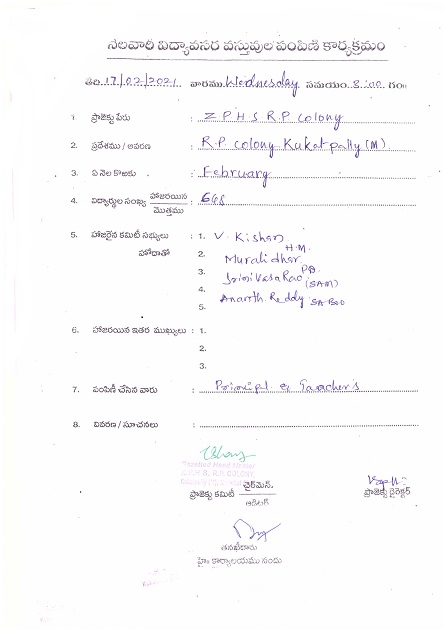 నెలవారీ విద్యావసర వస్తువుల పంపిణీ కార్యక్రమం
తేది 17/02/2021 వారము Wednesday సమయం. 8:00 గం॥
1. ప్రాజెక్టు పేరు : Z P H S R.P Colony
2. ప్రదేశము / ఆవరణ : R.P. colony Kukatpally (M)
3. ఏ నెల కొఱకు : February
4. విద్యార్థుల సంఖ్య హాజరయిన / మొత్తము : 668
5. హాజరైన కమిటీ సభ్యులు హోదాతో : 1. V. Kishan H.M.
2. Muralidhar PD.
3. Srinivasa Rao (SAM)
4. Ananth. Reddy SA Bio
5.
6. హాజరయిన ఇతర ముఖ్యులు : 1.
2.
3.
7. పంపిణీ చేసిన వారు : Principl & Teachers
8. వివరణ / సూచనలు :
Gazetted Head Master
Z.P.H.S. R.P. COLONY
ప్రాజెక్టు కమిటీ చైర్మెన్.
ఆడిటర్
ప్రాజెక్టు డైరెక్టర్
తనఖీదారు
హైం కార్యాలయము నందు